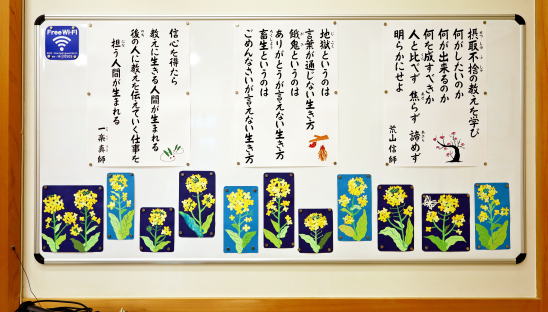 Free Wi-Fi
摂取不捨の教えを学び
何がしたいのか
何が出来るのか
何を成すべきか
人と比べず 焦らず 諦めず
明らかにせよ
荒山信 師
地獄というのは
言葉が通じない生き方
餓鬼というのは
ありがとうが言えない生き方
畜生というのは
ごめんなさいが言えない生き方
信心を得たら
教えに生きる人間が生まれる
後の人に教えを伝えていく仕事を
担う人間が生まれる
一楽真 師